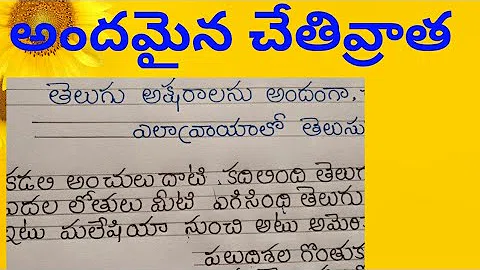 అందమైన చేతివ్రాత
తెలుగు అక్షరాలను అందంగా,
ఎలా వ్రాయాలో తెలుసు
కడలి అంచులు దాటి కదిలింది తెలుగ
ఎదల లోతులు మీటి ఎగిసింది తెలుగు
ఇటు మలేషియా నుంచి అటు అమెరి
పలుదిశల గొంతుక